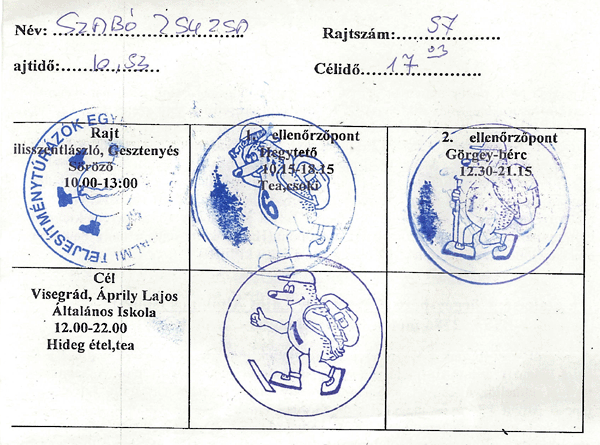 Név: SZABÓ ZSUZSA
Rajtszám: 57
ajtidő: 10.53
Célidő 17 03
Rajt
ilisszentlászló, Gesztenyés
Söröző
10.00-13:00
1. ellenőrzőpont
Hegytető
10.15-18.15
Tea,csoki
2. ellenőrzőpont
Görgey-bérc
12.30-21.15
TELJESÍTMÉNYTÚRÁZÓK EGY
Cél
Visegrád, Áprily Lajos
Általános Iskola
12.00-22.00
Hideg étel,tea